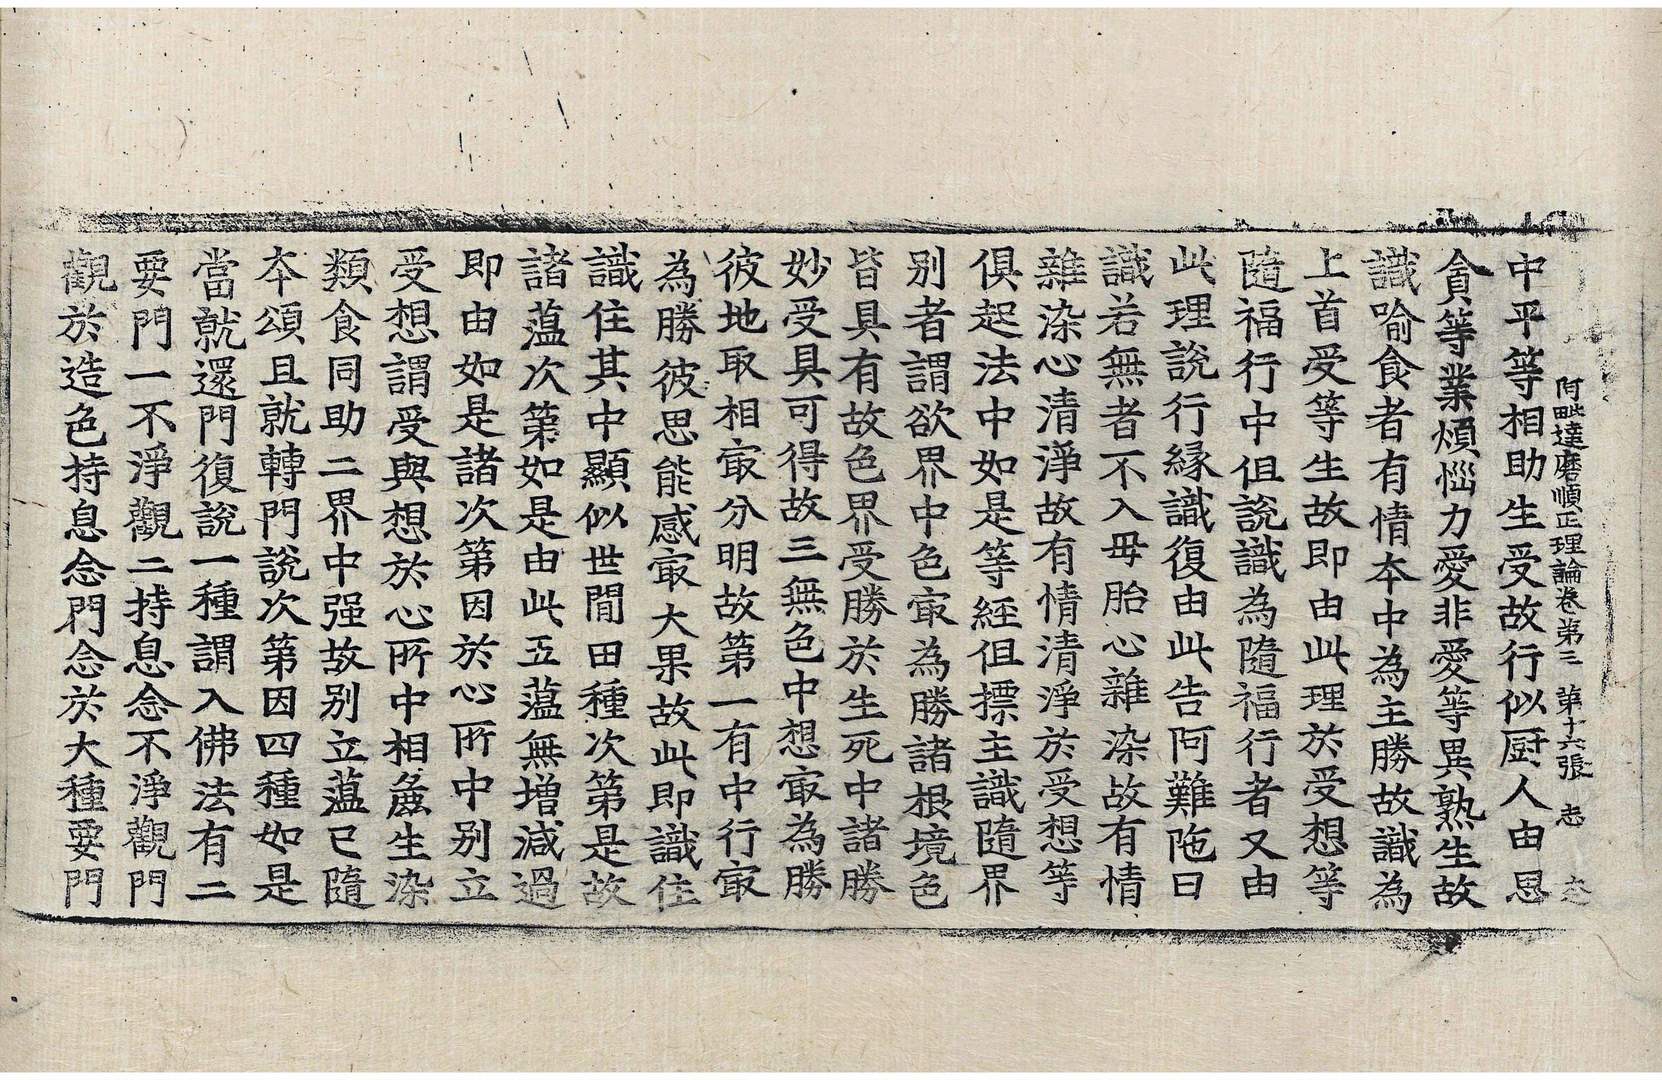 阿毗達磨順正理論卷第三　第十六張　志
中平等相助生受故行似厨人由思
貪等業煩惱力愛非愛等異熟生故
識喻食者有情夲中為主勝故識為
上首受等生故即由此理於受想等
隨福行中但說識為隨福行者又由
此理說行緣識復由此告阿難陁曰
識若無者不入母胎心雜染故有情
雜染心清淨故有情清淨於受想等
俱起法中如是等經但摽主識隨界
別者謂欲界中色㝡為勝諸根境色
皆具有故色界受勝於生死中諸勝
妙受具可得故三無色中想㝡為勝
彼地取相㝡分明故第一有中行㝡
為勝彼思能感㝡大果故此即識住
識住其中顯似世間田種次第是故
諸蘊次第如是由此五蘊無增減過
即由如是諸次第因於心所中别立
受想謂受與想於心所中相麁生染
類食同助二界中强故别立蘊已隨
夲頌且就轉門說次第因四種如是
當就還門復說一種謂入佛法有二
要門一不淨觀二持息念不淨觀門
觀於造色持息念門念於大種要門